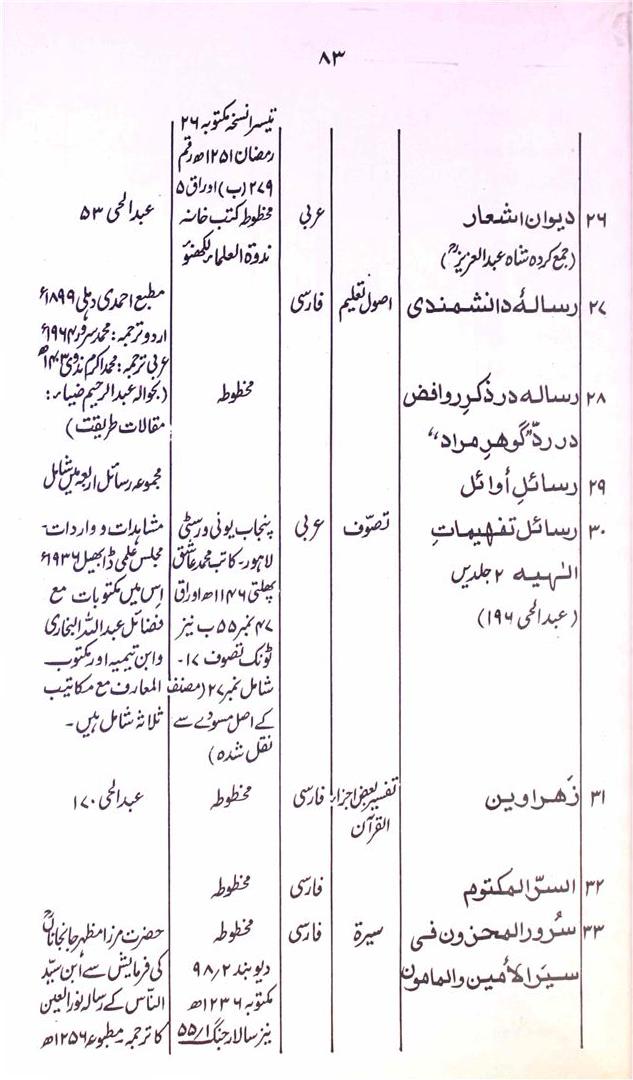 ۸۳
تیسرا نسخہ مکتوبہ ۲۶
رمضان ۱۲۵۱ھ رقم
۲۷۹ (ب) اوراق ۵
۲۶ دیوان اشعار عربی مخطوطہ کتب خانہ عبدالحی ۵۳
(جمع کردہ شاہ عبدالعزیزؒ) ندوۃ العلماء لکھنؤ
۲۷ رسالۂ دانشمندی اصول تعلیم فارسی مطبع احمدی دہلی ۱۸۹۹ء
اردو ترجمہ: محمد سرور ۱۹۶۴ء
عربی ترجمہ: محمد اکرم ندوی ۱۴۰۳ھ
۲۸ رسالہ در ذکرِ روافض مخطوطہ (بحوالہ عبدالرحیم ضیاء:
در ردّ ”گوهرِ مراد“ مقالات طریقت)
۲۹ رسائلِ أوائل مجموعہ رسائل اربعہ میں شامل
۳۰ رسائل تفهیماتِ تصوّف عربی پنجاب یونی ورسٹی مشاہدات و واردات۔
الٰہیہ ۲ جلدیں لاہور۔ کاتب محمد عاشق مجلس علمی ڈابھیل ۱۹۳۶ء
(عبدالحی ۱۹۶) پھلتی ۱۱۴۶ھ اوراق اس میں مکتوبات مع
۴۷ نمبر ۵۵ ب نیز فضائل عبداللہ البخاری
ٹونک تصوف ۱۷۔ وابن تیمیہ اور مکتوب
شامل نمبر ۲۷ (مصنف المعارف مع مکاتیب
کے اصل مسودے سے ثلاثہ شامل ہیں۔
نقل شدہ)
۳۱ زَهراوین تفسیر بعض اجزاء فارسی مخطوطہ عبدالحی ۱۷۰
القرآن
۳۲ السرّ المکتوم فارسی مخطوطہ
۳۳ سُرور المحزون فی سیرۃ فارسی مخطوطہ حضرت مرزا مظہر جانجاناںؒ
سیَر الأمین والمامون دیوبند ۹۸/۲ کی فرمایش سے ابن سیّد
مکتوبہ ۱۲۳۶ھ النّاس کے رسالہ نور العین
نیز سالار جنگ ۵۵/۱ کا ترجمہ مطبوعہ ۱۲۵۶ھ